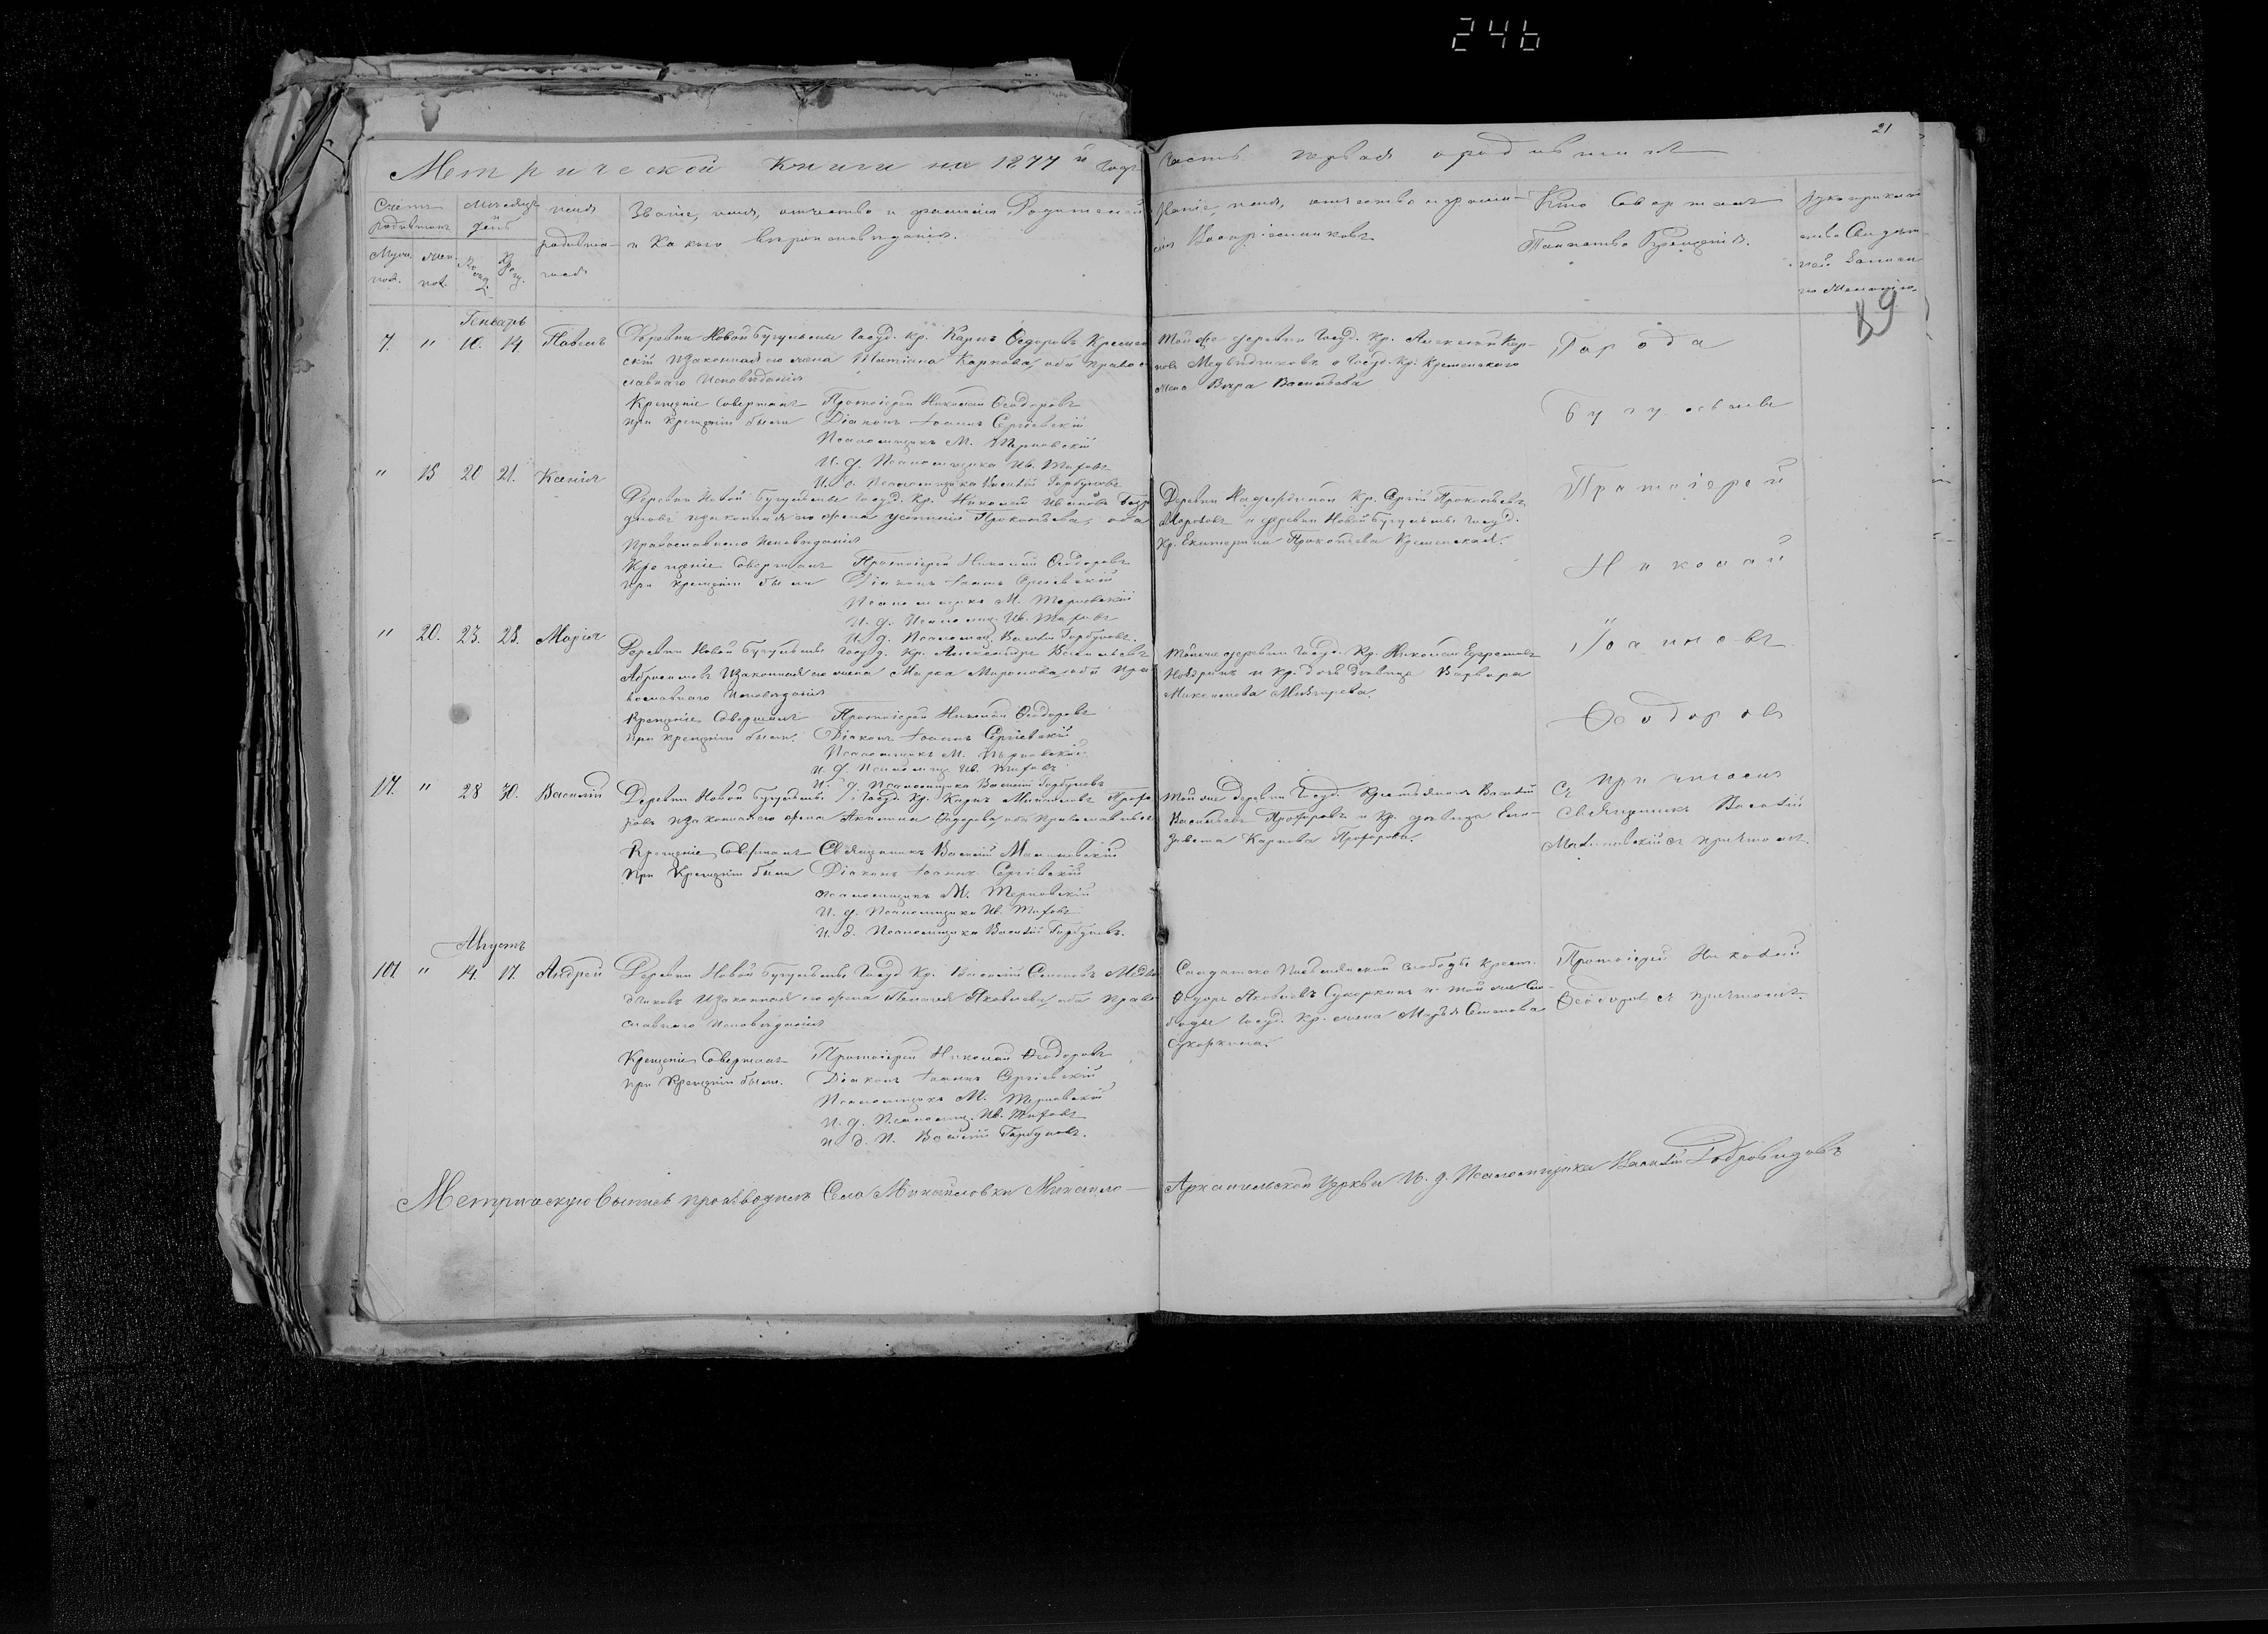 246
21
Метрической книги на 1877 й годъ
часть первая о родившихся
Счетъ родившихъ
Мужеск. пол. Женск. пол.
Мѣсяцъ и день
Рожд. Крещ.
Имя родивша-
Званіе, имя, отчество и фамилія Родителей
и Какого вѣроисповѣданія.
Званіе, имя, отчество и фами-
лія Воспріемниковъ
Кто Совершалъ
Таинство Крещенія.
Рукоприклад
ство Свидѣте
лей
89
Генварь
7. " 10. 14. Павелъ
Деревни Новой Бугульмы Госуд. Кр. Карпъ Ѳедоровъ Кремен
скій и законная его жена Татіана Карпова, оба Право
славнаго Исповѣданія
Крещеніе Совершалъ Протоіерей Николай Ѳеодоровъ
при Крещеніи были Діаконъ Іоаннъ Сергіевскій
Псаломщикъ М. Терновскій
И. д. Псаломщика Ив.
И. д. Псаломщика Василій Горбуновъ
Той же деревни Госуд. Кр. Алексѣй Кар-
повъ Медвѣдчиковъ и Госуд. Кр. Кременскаго
жена Вѣра Васильева
" 15 20 21. Ксенія
Деревни Новой Бугульмы Госуд. Кр. Николай Ивановъ
и законная его жена Устинія Прокопьева, оба
Православнаго Исповѣданія
Крещеніе Совершалъ Протоіерей Николай Ѳеодоровъ
при крещеніи были Діаконъ Іоаннъ Сергіевскій
Псаломщикъ М. Терновскій
И. д. Псаломщ. Ив.
И. д. Псаломщ. Василій Горбуновъ.
Деревни Надеждиной Кр. Сергій Прокопьевъ
Морозовъ и деревни Новой Бугульмы Госуд.
Кр. Екатерина Прокопьева Кременская.
" 20. 23. 28. Марія
Деревни Новой Бугульмы Госуд. Кр. Александръ Васильевъ
Абросимовъ и законная его жена Марѳа Миронова, оба Пра
вославнаго Исповѣданія
Крещеніе Совершалъ Протоіерей Николай Ѳеодоровъ
при крещеніи были. Діаконъ Іоаннъ Сергіевскій
Псаломщикъ М. Терновскій
И. д. Псаломщ. Ив.
И. д. Псаломщика Василій Горбуновъ
Той же деревни Госуд. Кр. Николай Ефремовъ
и Кр. дочь дѣвица Варвара
17. " 28 30. Василій
Деревни Новой Бугульмы Госуд. Кр. Карпъ Михайловъ Прохо
ровъ и законная его жена Акилина Ѳедорова, оба Православныя
Крещеніе Совершалъ Священникъ Василій Малиновскій
При Крещеніи были Діаконъ Іоаннъ Сергіевскій
Псаломщикъ М. Терновскій
И. д. Псаломщика Ив.
И. д. Псаломщика Василій Горбуновъ.
Той же деревни Госуд. Крестьянинъ Василій
Васильевъ Прохоровъ и Кр. дѣвица Ели-
завета Карпова Прохорова.
Города
Бугульмы
Протоіерей
Николай
Іоанновъ
Ѳеодоровъ
Съ причтомъ
Священникъ Василій
Малиновскій съ причтомъ.
Августъ
101 " 14 17. Андрей
Деревни Новой Бугульмы Госуд. Кр. Василій Семеновъ Медвѣ
дчиковъ и законная его жена Пелагея Яковлева, оба Право
славнаго Исповѣданія
Крещеніе Совершалъ Протоіерей Николай Ѳеодоровъ
при Крещеніи были. Діаконъ Іоаннъ Сергіевскій
Псаломщикъ М. Терновскій
И. д. Псаломщ. Ив.
И. д. П. Василій Горбуновъ.
Солдатско Письмянской слободы Крест.
Ѳедоръ Яковлевъ Сукоркинъ и той же Сло-
боды Госуд. Кр. жена Марья Семенова
Сукоркина.
Протоіерей Николай
Ѳеодоровъ съ причтомъ.
Метрическую выпись производилъ Села Михайловки Михаило-
Архангельской Церкви И. д. Псаломщика Василій Добровидовъ